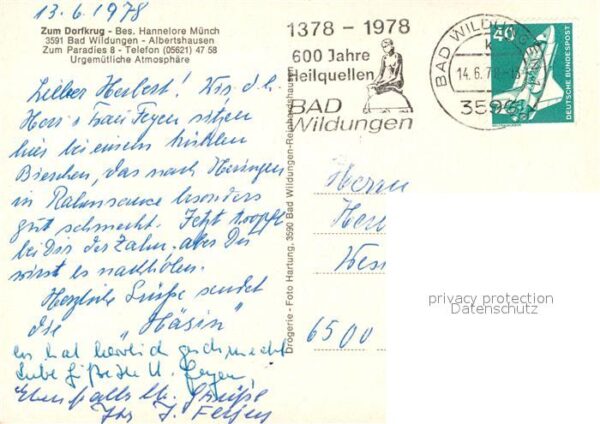 13.6.1978
Zum Dorfkrug - Bes. Hannelore Münch
3591 Bad Wildungen - Albertshausen
Zum Paradies 8 - Telefon (05621) 47 58
Urgemütliche Atmosphäre
Lieber Herbert! Wir, d. h.
Herr & Frau Feyen sitzen
hier bei einem kühlen
Bierchen, das nach Heringen
in Rahmsauce besonders
gut schmeckt. Jetzt tropft
bei Dir der Zahn, aber Du
wirst es nachholen.
Herzliche Grüße sendet
die "Häsin"
es hat herrlich geschmeckt
Liebe Grüße U. Feyen
Ebenfalls Grüße
Ihr J. Feyen
Drogerie - Foto Hartung, 3590 Bad Wildungen-Reinhardshausen
1378 - 1978
600 Jahre
Heilquellen
BAD
Wildungen
BAD WILDUNGEN
14.6.78
3590
40
DEUTSCHE BUNDESPOST
Herrn
6500
privacy protection
Datenschutz